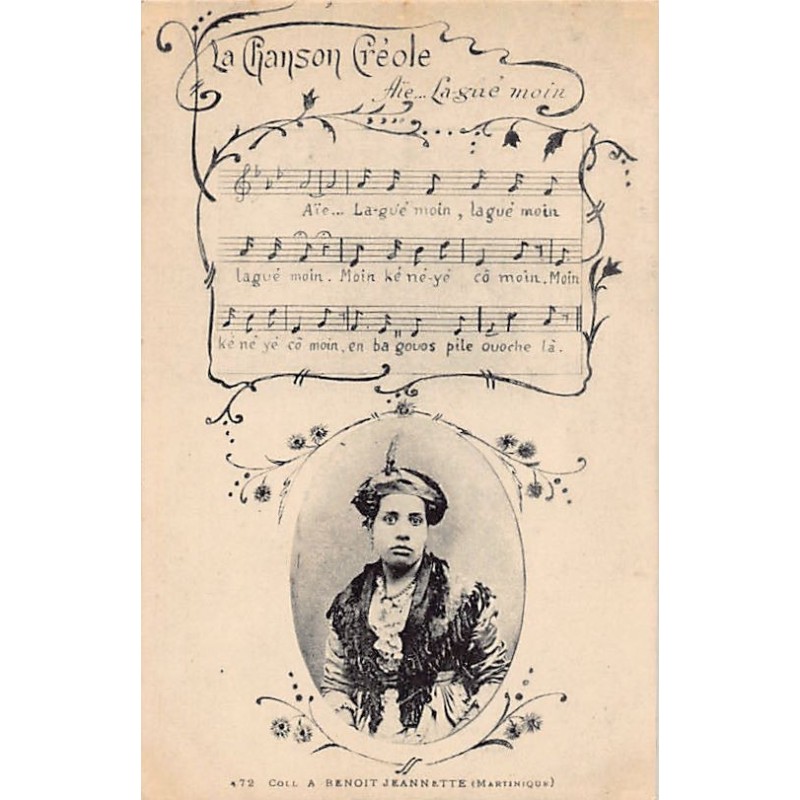 La Chanson Créole
Aïe... La-gué moin
Aïe... La-gué moin, lagué moin
lagué moin. Moin ké né-yé cô moin. Moin
ké né yé cô moin, en ba gouos pile ouoche là.
472 COLL A BENOIT JEANNETTE (MARTINIQUE)